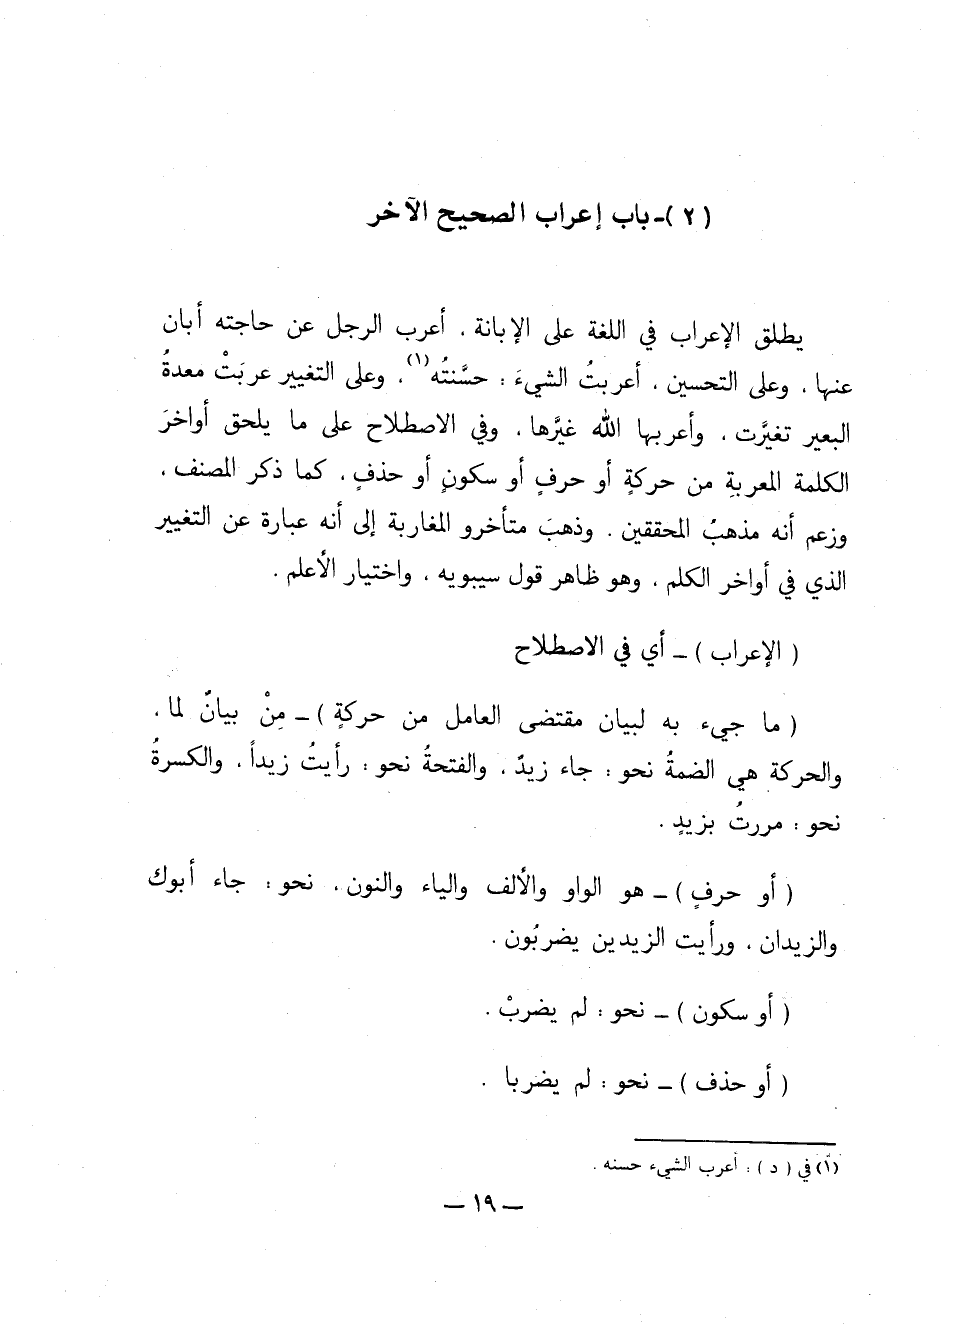 (٢) ـ باب إعراب الصحيح الآخر
يطلق الإعراب في اللغة على الإبانة ، أعرب الرجل عن حاجته أبان
عنها ، وعلى التحسين ، أعربتُ الشيءَ : حسَّنتُه(١) ، وعلى التغيير عربَتْ معدةُ
البعير تغيَّرت ، وأعربها الله غيَّرها ، وفي الاصطلاح على ما يلحق أواخرَ
الكلمة المعربةِ من حركةٍ أو حرفٍ أو سكونٍ أو حذفٍ ، كما ذكر المصنف ،
وزعم أنه مذهبُ المحققين . وذهبَ متأخرو المغاربة إلى أنه عبارة عن التغيير
الذي في أواخر الكلم ، وهو ظاهر قول سيبويه ، واختيار الأعلم .
( الإعراب ) ـ أي في الاصطلاح
( ما جيء به لبيان مقتضى العامل من حركةٍ ) ـ مِنْ بيانٌ لما ،
والحركة هي الضمةُ نحو : جاء زيدٌ ، والفتحةُ نحو : رأيتُ زيداً ، والكسرةُ
نحو : مررتُ بزيدٍ .
( أو حرفٍ ) ـ هو الواو والألف والياء والنون ، نحو : جاء أبوك
والزيدان ، ورأيت الزيدين يضربُون .
( أو سكون ) ـ نحو : لم يضربْ .
( أو حذف ) ـ نحو : لم يضربا .
(١) في ( د ) : أعرب الشيء حسنه .
— ١٩ —